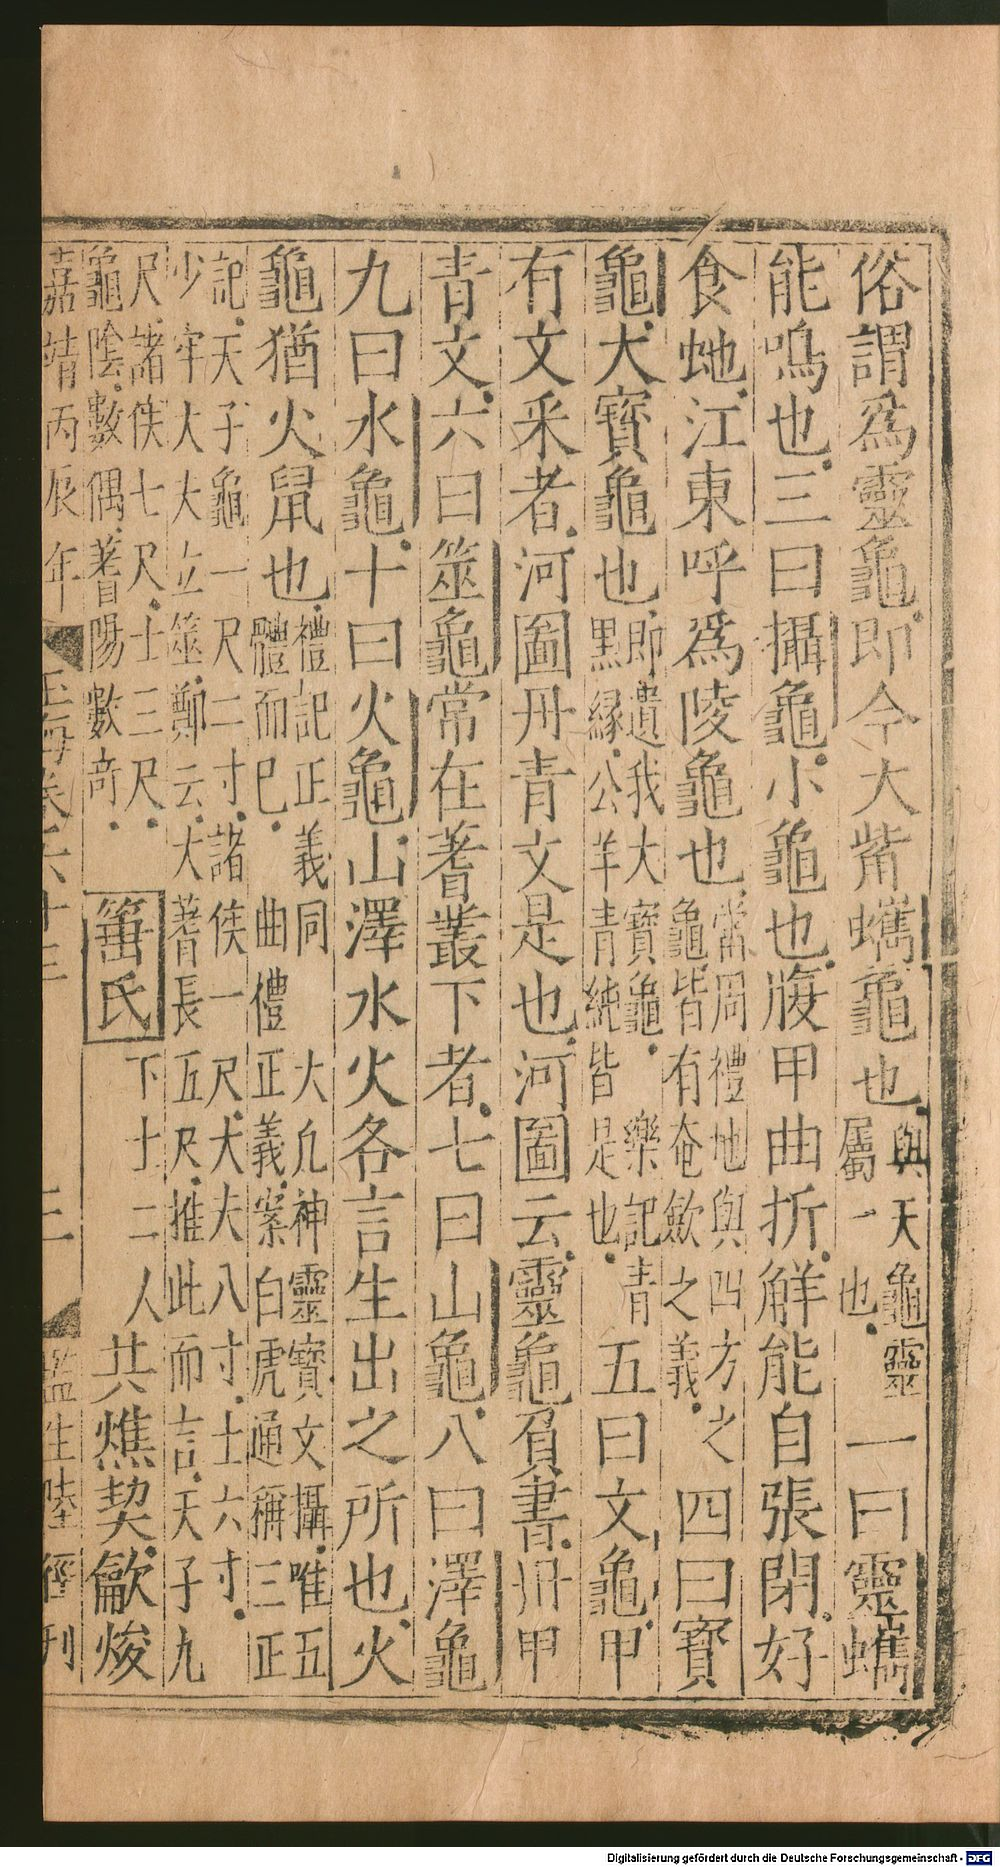 俗謂爲靈龜.即今大觜蠵龜也.與天龜靈
屬一也.一曰靈蠵
能鳴也.三曰攝龜.小龜也.腹甲曲折.觧能自張閉.好
食虵.江東呼爲陵龜也.常周禮地與四方之
龜皆有奄歛之義.四曰寶
龜.大寶龜也.即遺我大寶龜.樂記青
黑縁.公羊青純皆是也.五曰文龜.甲
有文采者.河圖丹青文是也.河圖云.靈龜負書.丹甲
青文.六曰筮龜常在蓍叢下者.七曰山龜.八曰澤龜
九曰水龜.十曰火龜.山澤水火各言生出之所也.火
龜猶火鼠也.禮記正義同 大凢神靈寶文攝.唯五
體而巳.曲禮正義.案白虎通稱三正
記.天子龜一尺二寸.諸侯一尺.大夫八寸.士六寸.
少牢大夫立筮.鄭云.大蓍長五尺.推此而言.天子九
尺.諸侯七尺.士三尺.
龜陰.數偶.蓍陽數竒.
菙氏 下士二人 共燋契.龡焌
嘉靖丙辰年 玉海卷六十三 三 監生陸徑刊
Digitalisierung gefördert durch die Deutsche Forschungsgemeinschaft - DFG